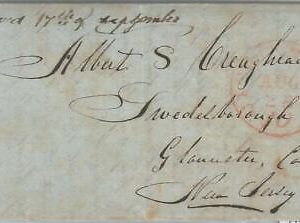 17th of september
Albert S Creughead
Swedesborough
Gloucester, Co
New Jersey
AUG